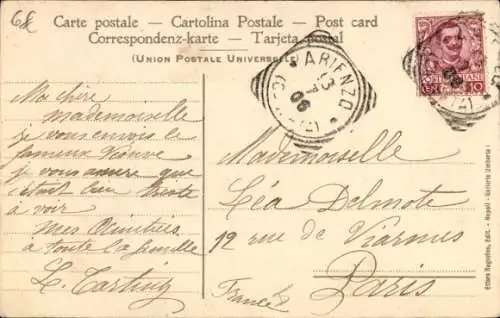 68
Carte postale — Cartolina Postale — Post card
Correspondenz-karte — Tarjeta postal
(Union Postale Universelle)
ARIENZO
13
7
06
POSTE ITALIANE
CENT. 10
Ma chère
Mademoiselle
je vous envois le
fameux Vésuve
je vous assure que
c'était bien triste
à voir
Mes Amitiés
à toute la famille
Mademoiselle
Léa Delmote
12 rue de Viarmes
Paris
France
Ettore Ragozino, Edit. - Napoli - Galleria Umberto I